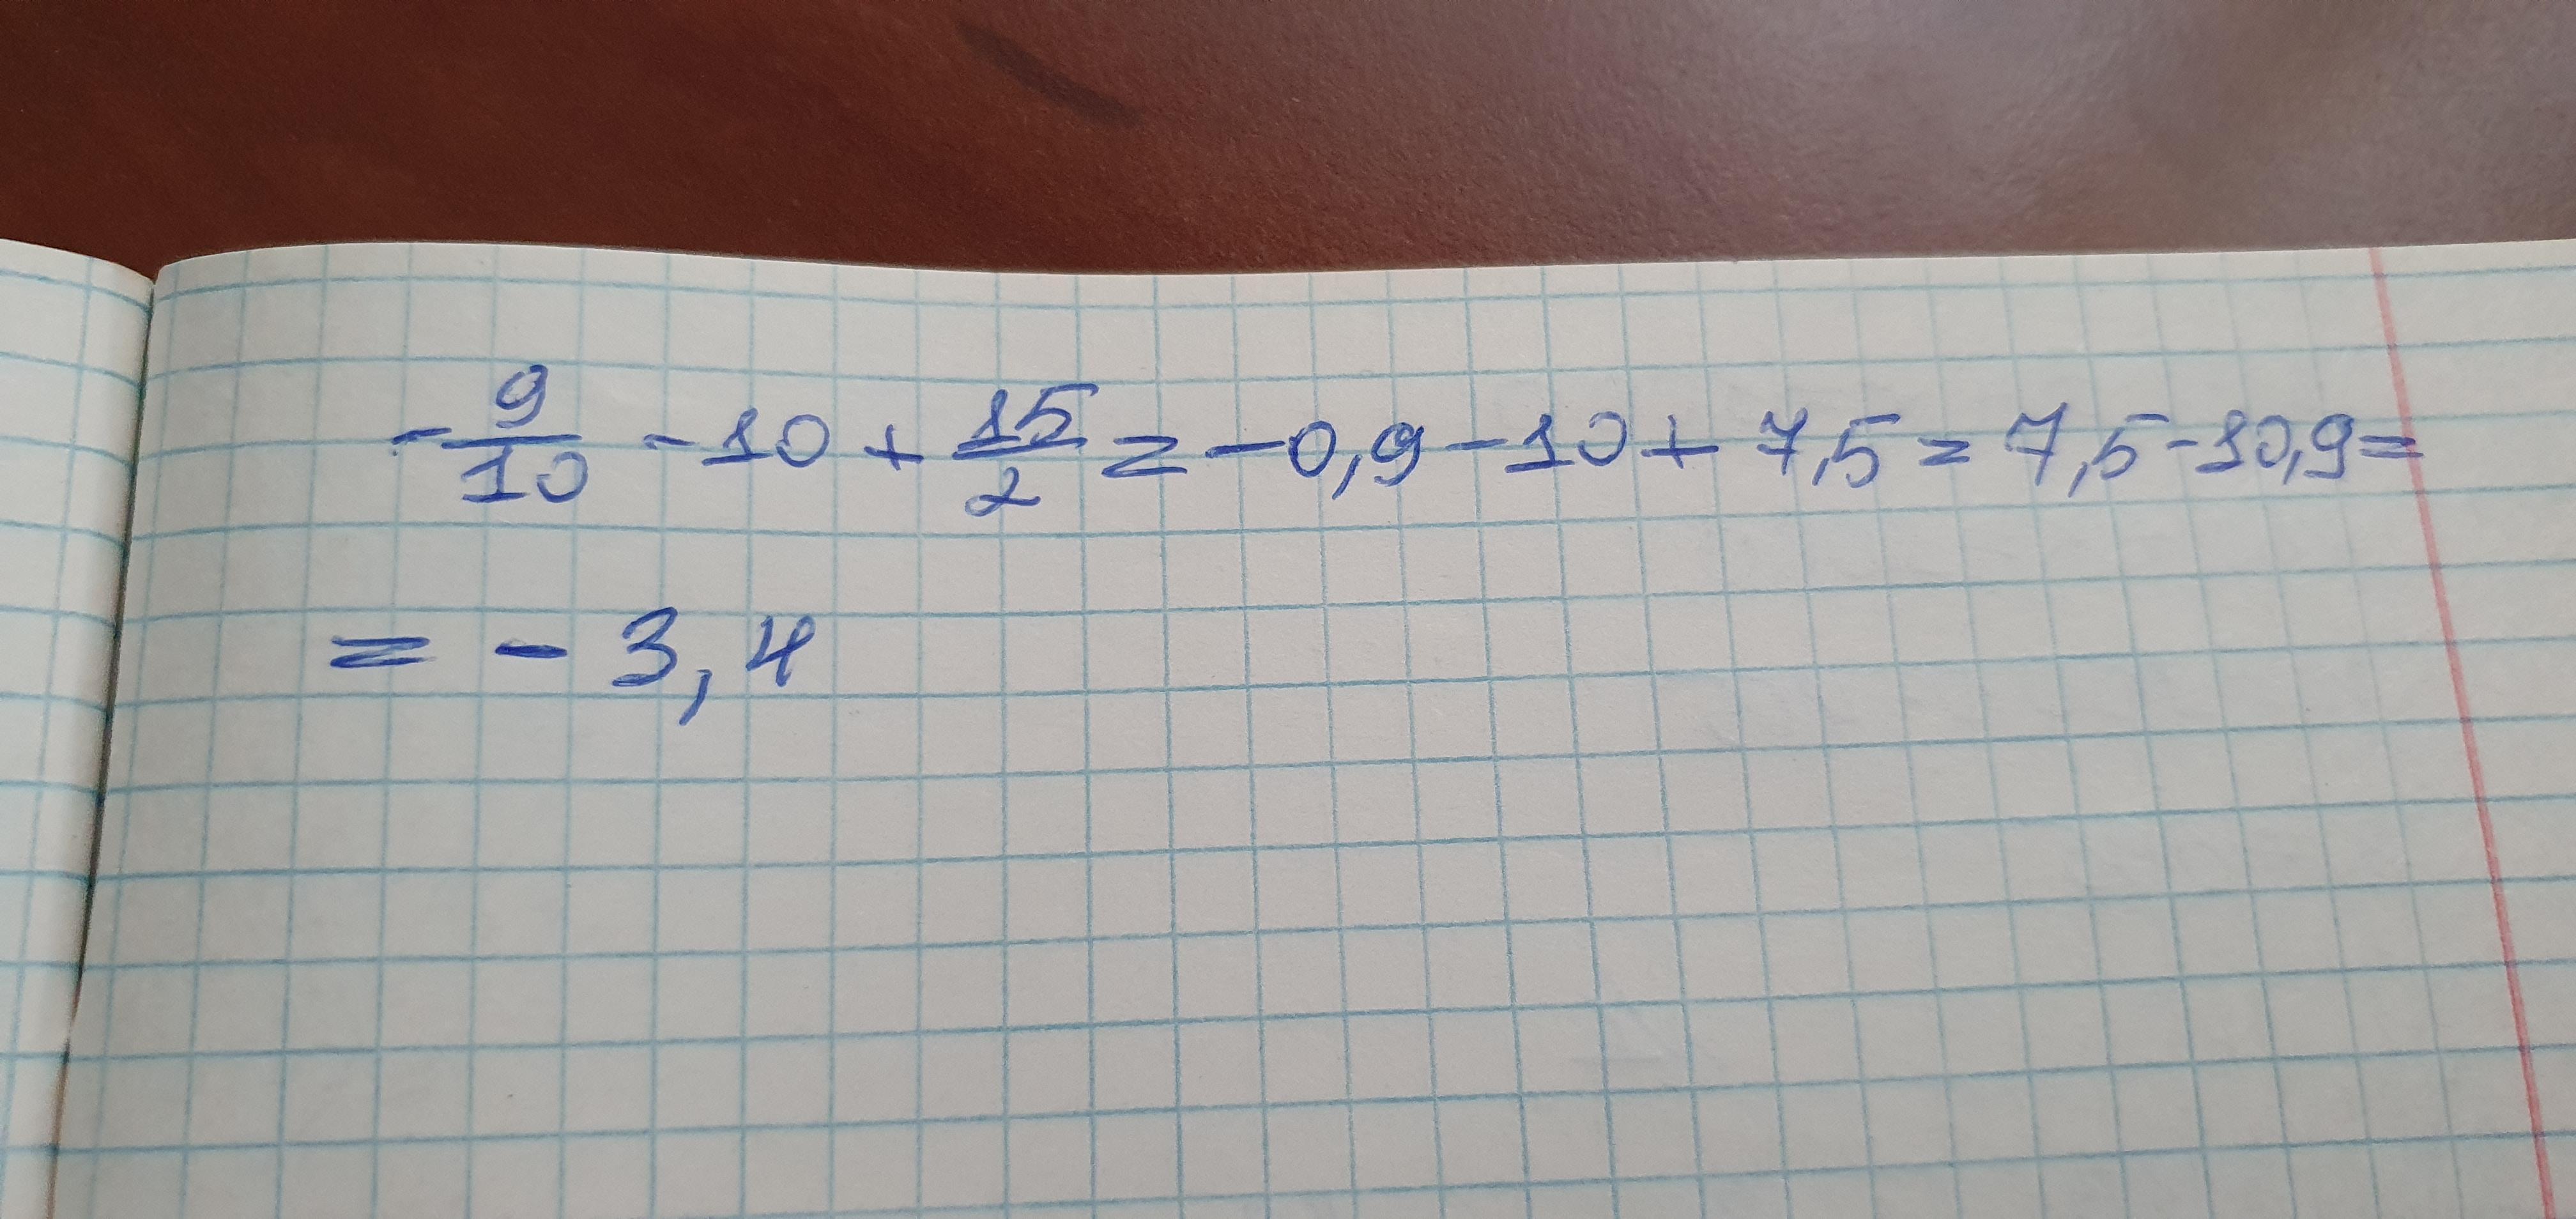 -9/10 -10 + 15/2 = -0,9 -10 + 7,5 = 7,5 -10,9 =
= -3,4